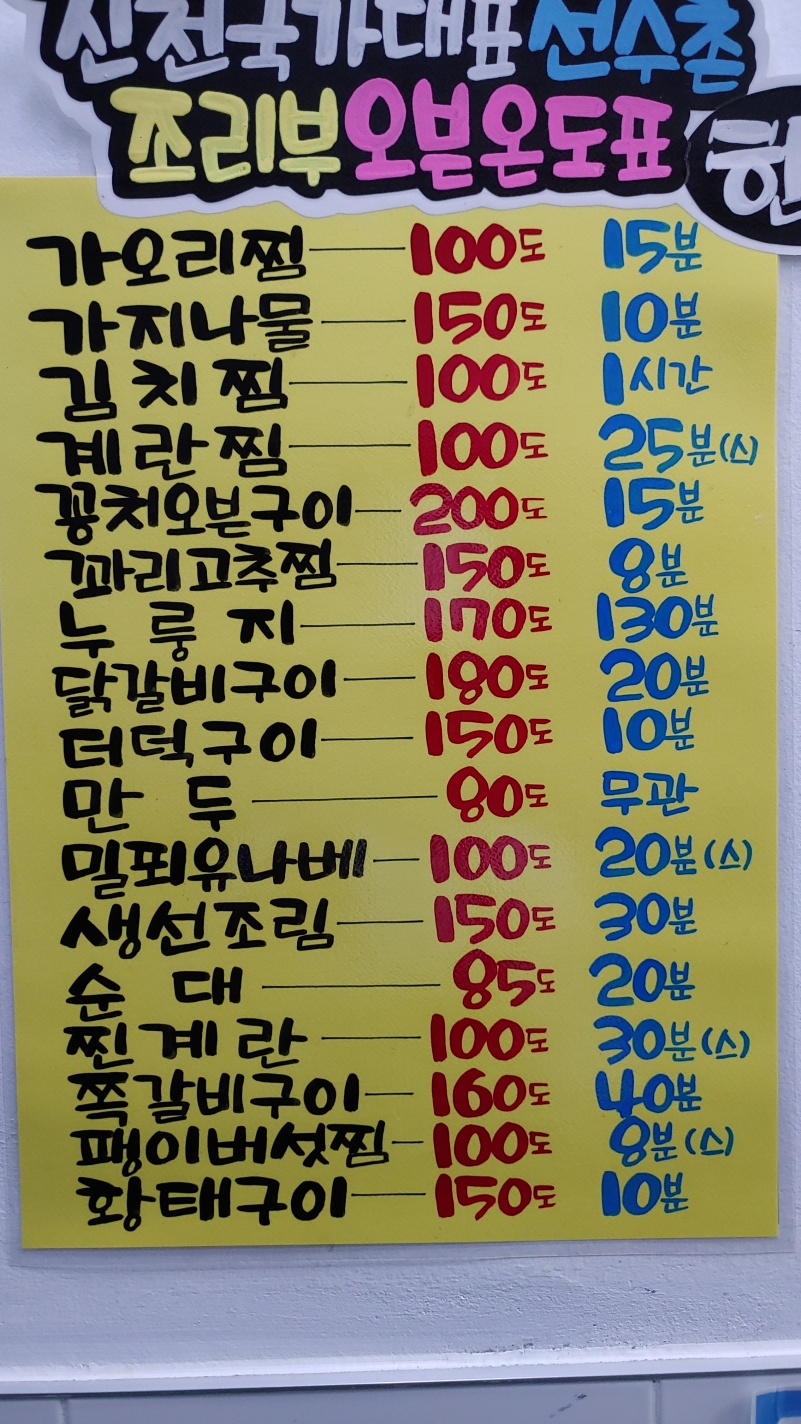 진천국가대표선수촌
조리부오븐온도표
가오리찜 100도 15분
가지나물 150도 10분
김치찜 100도 1시간
계란찜 100도 25분(스)
꽁치오븐구이 200도 15분
꽈리고추찜 150도 8분
누룽지 170도 130분
닭갈비구이 180도 20분
더덕구이 150도 10분
만두 80도 무관
밀푀유나베 100도 20분(스)
생선조림 150도 30분
순대 85도 20분
찐계란 100도 30분(스)
쪽갈비구이 160도 40분
팽이버섯찜 100도 8분(스)
황태구이 150도 10분